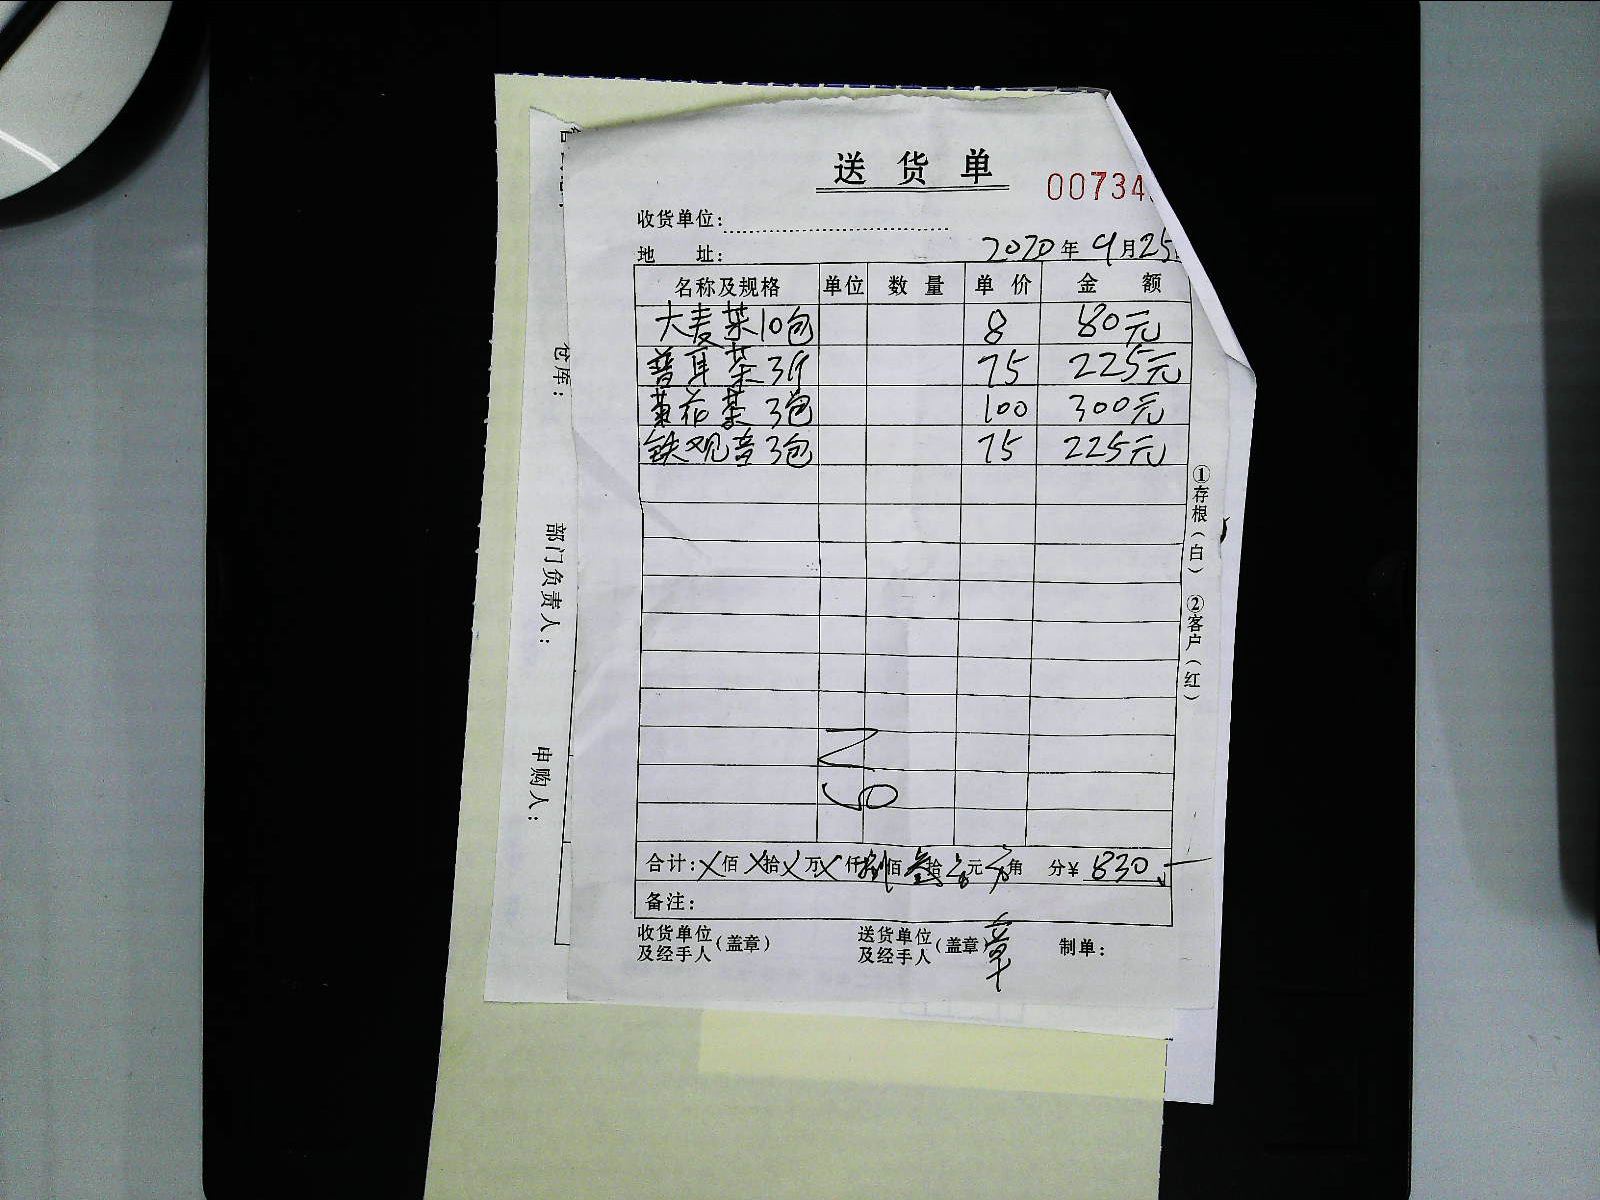 送货单
00734
收货单位:
地 址: 2020年9月25
名称及规格 单位 数量 单价 金额
大麦茶10包 8 80元
普耳茶3斤 75 225元
菊花茶3包 100 300元
铁观音3包 75 225元
①存根(白) ②客户(红)
合计:X佰X拾X万X仟捌佰叁拾 元 角 分¥830
备注:
收货单位及经手人(盖章) 送货单位及经手人(盖章 章 制单:
仓库:
部门负责人:
申购人: